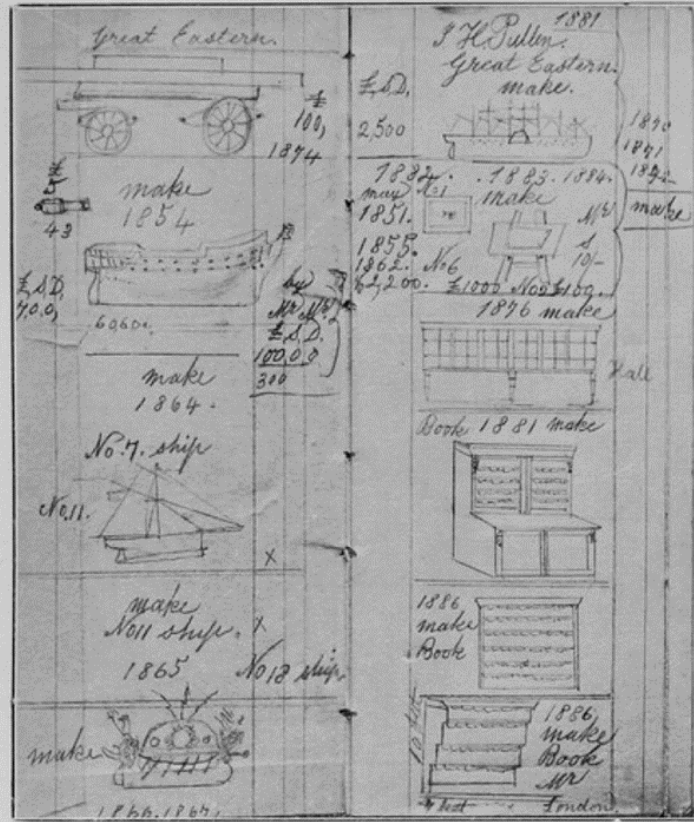 Great Eastern.
£
100,
1874
5 £
43
make
1854
£.S.D,
7,0,0,
6060.
by
Mr
£.S.D.
100,0,0
300
make
1864.
No. 7. ship
No. 11.
X
make
No 11 ship. X
1865 No 12 ship.
make
1866. 1867.
1881
J. H. Pullen.
Great Eastern.
make.
£.S.D.
2,500
1870
1871
1872
make
1882. 1883. 1884.
may No 1 make
1851.
1855.
1862. No 6
£2,200. £1000 No 2 £100.
Mr
S
10/-
1876 make
Hall
Book 1881 make
1886
make
Book
1886
make
Book
Mr
London